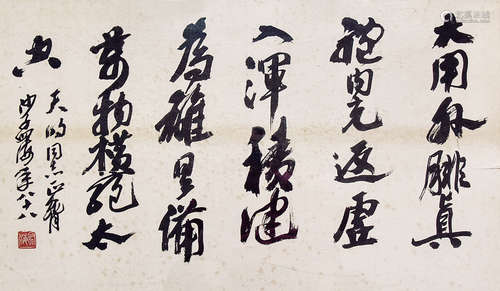 大用外腓真
體内充返虛
入渾積健
為雄具備
萬物橫絕太
空
天鸣同志正腕
沙孟海年八十八